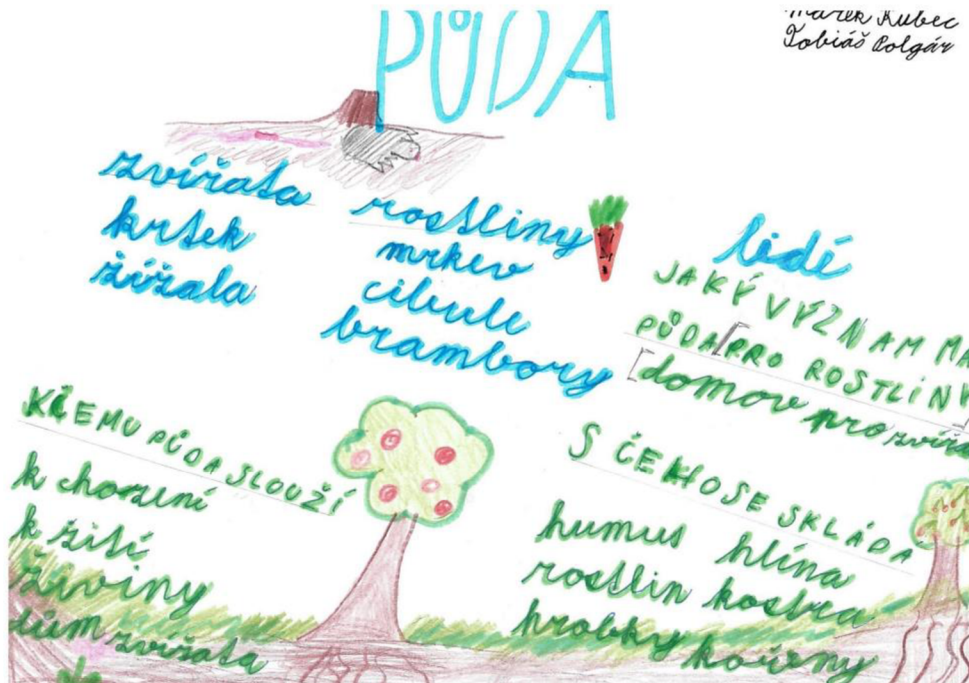 Marek Kubec
Tobiáš Polgár
PŮDA
zvířata
krtek
žížala
rostliny
mrkev
cibule
brambory
lidé
JAKÝ VÝZNAM MÁ
PŮDA PRO ROSTLINY
domov pro zvířa
K ČEMU PŮDA SLOUŽÍ
k chození
k žití
živiny
dům zvířata
S ČEHO SE SKLÁDA
humus hlína
rostlin kostra
hrobky kořeny